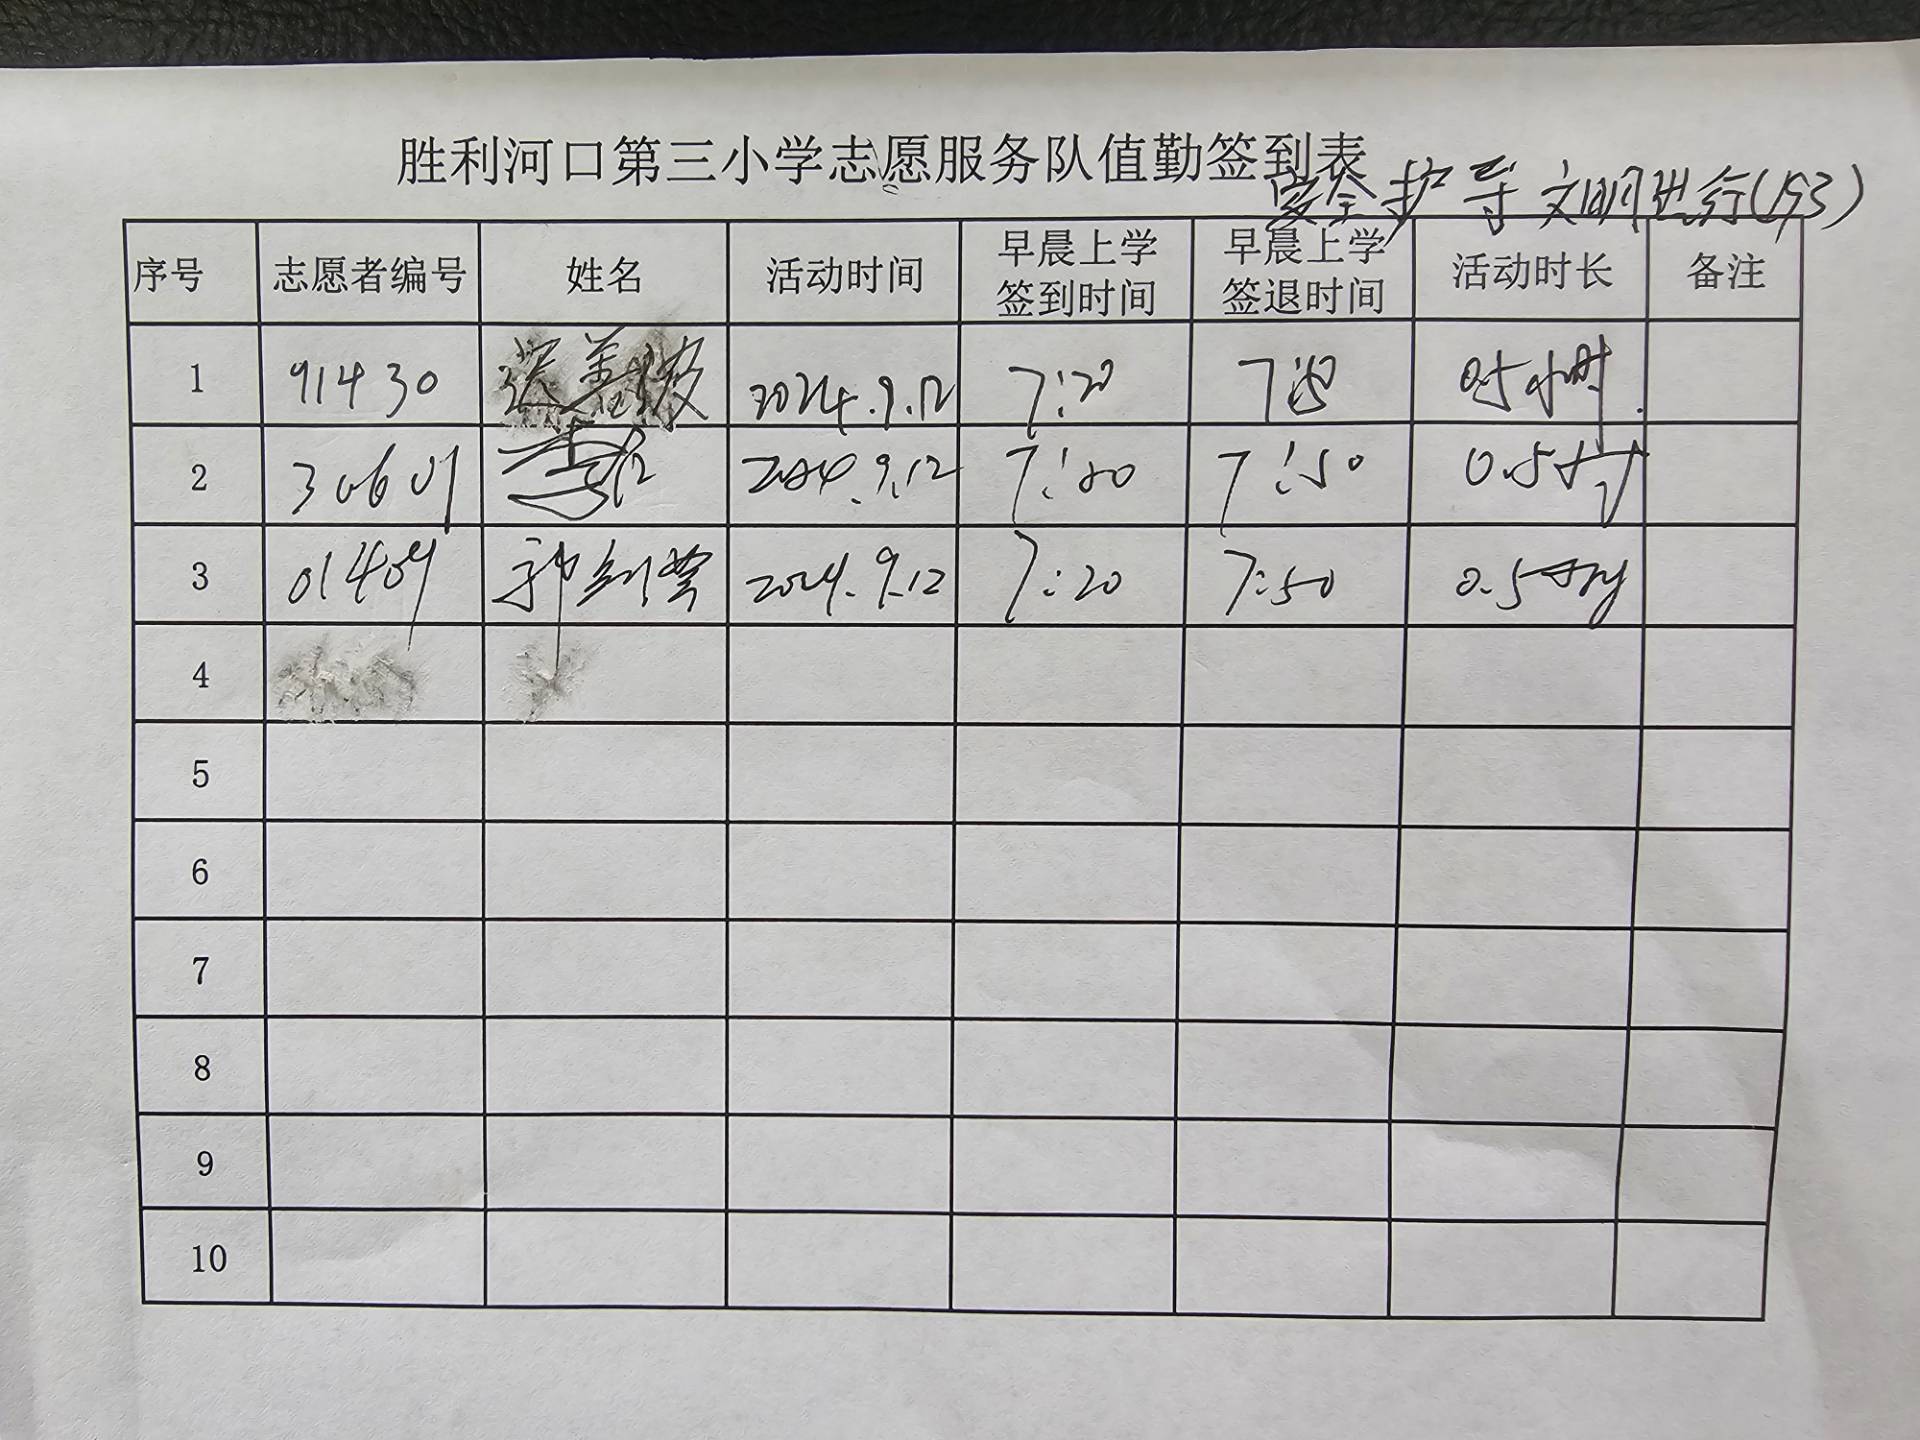 胜利河口第三小学志愿服务队值勤签到表
安全护导 文明进行(193)
序号 志愿者编号 姓名 活动时间 早晨上学签到时间 早晨上学签退时间 活动时长 备注
1 91430 2024.9.12 7:20 7:50 0.5小时
2 30601 2024.9.12 7:20 7:50 0.5小时
3 01409 2024.9.12 7:20 7:50 0.5小时
4
5
6
7
8
9
10